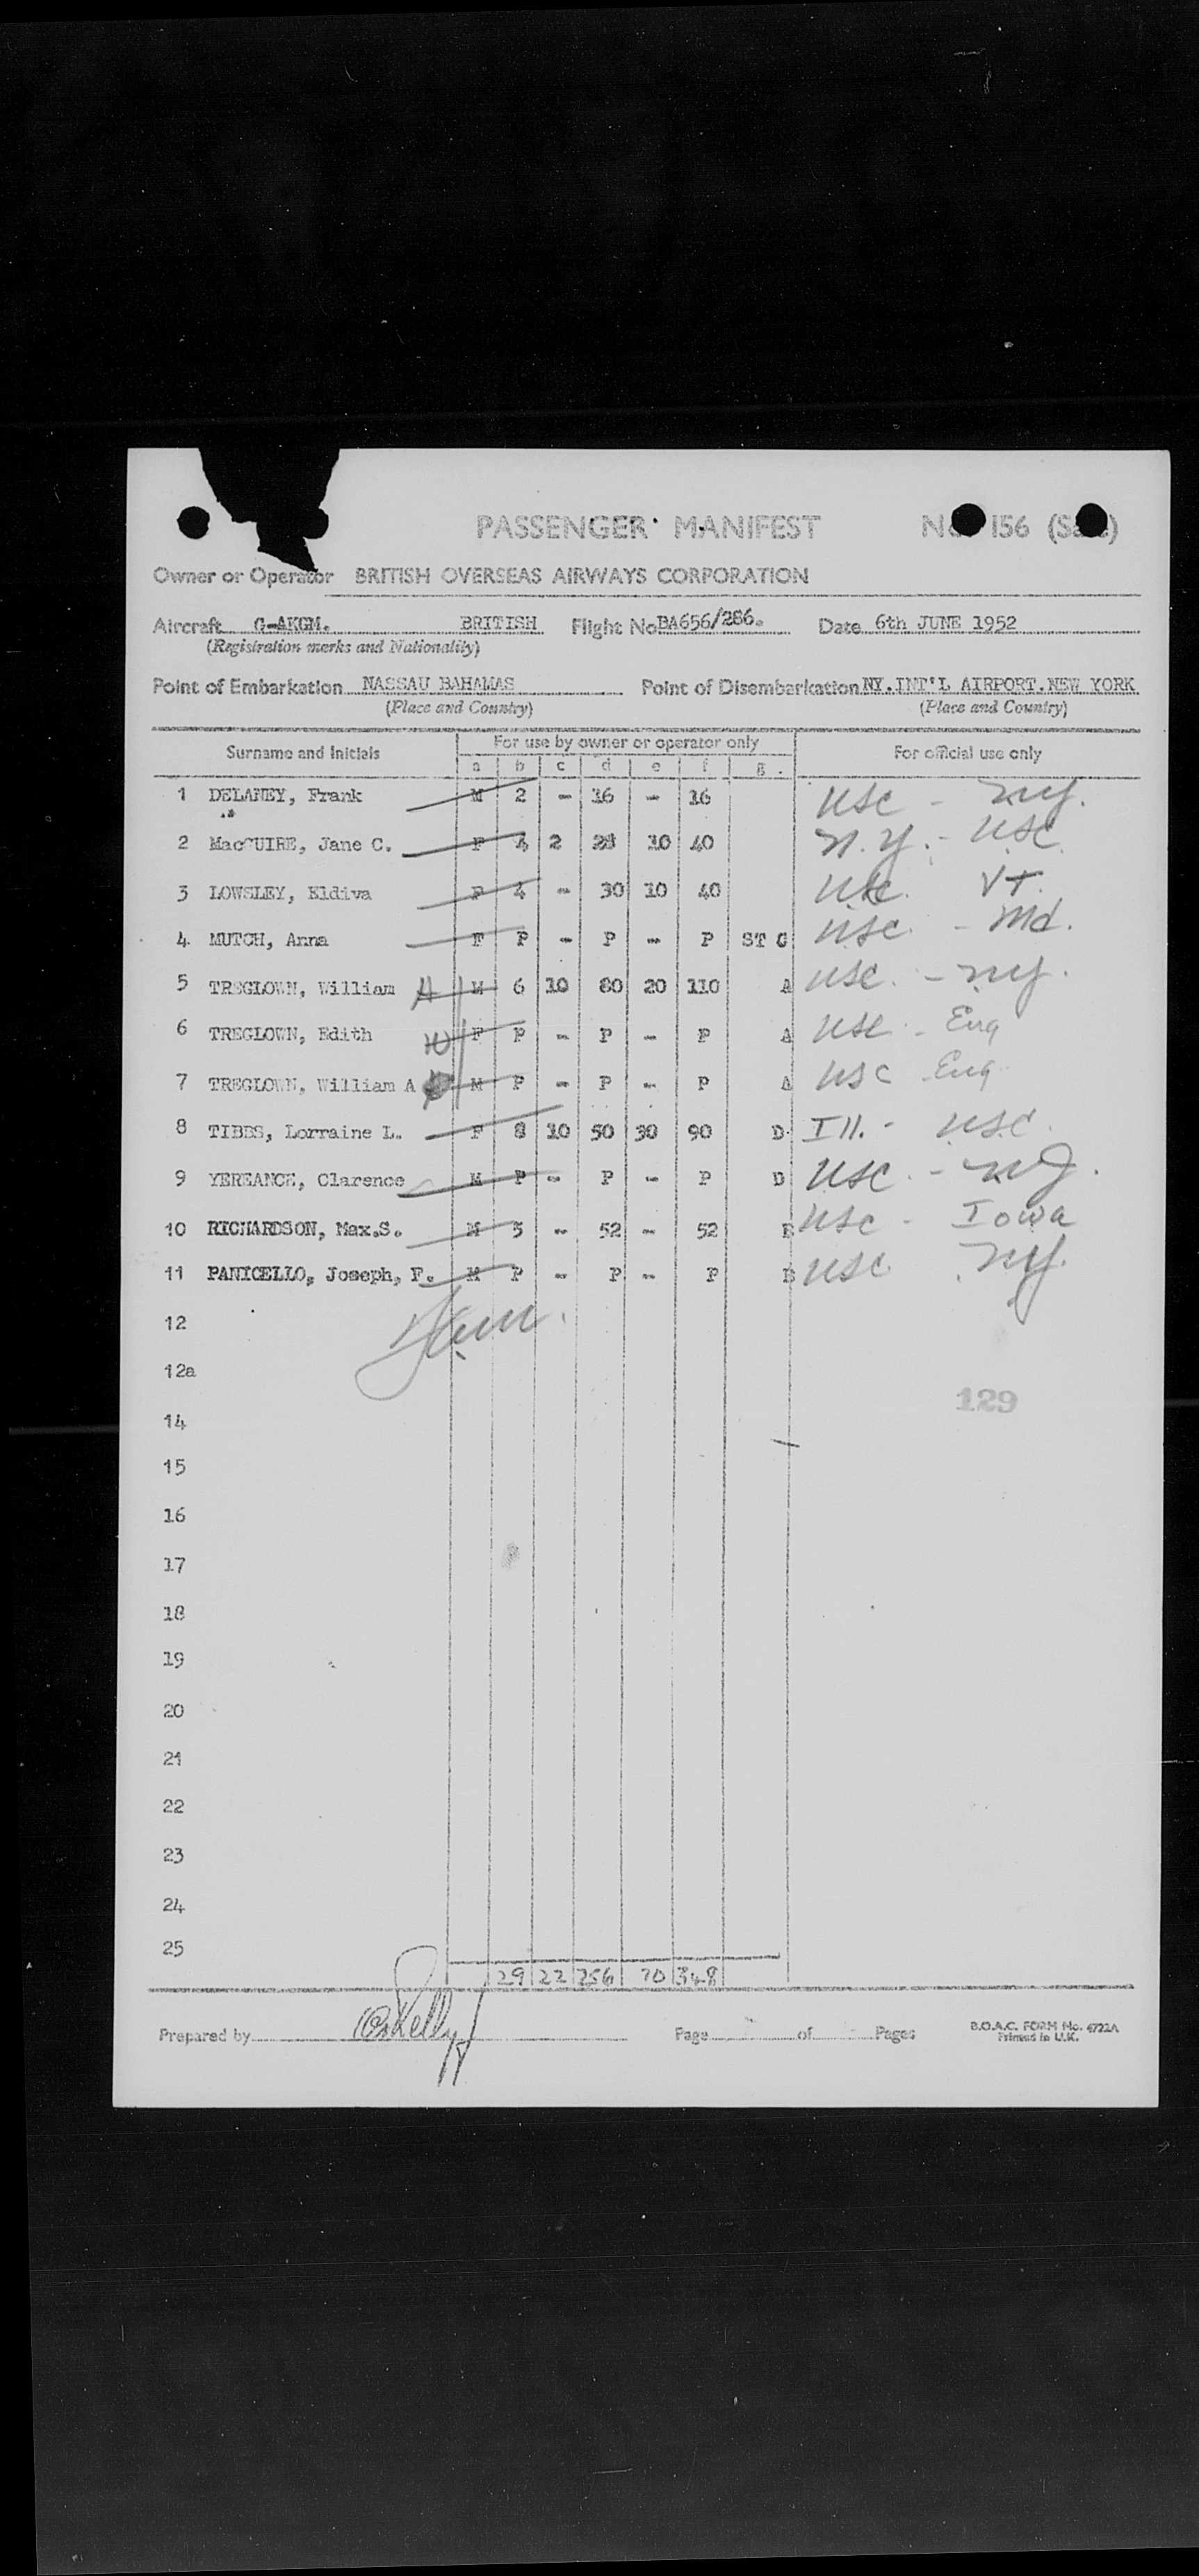 PASSENGER MANIFEST
156
Owner or Operator BRITISH OVERSEAS AIRWAYS CORPORATION
Aircraft G-AKGM. BRITISH Flight No BA656/286. Date 6th JUNE 1952
(Registration marks and Nationality)
Point of Embarkation NASSAU BAHAMAS Point of Disembarkation NY.INT'L AIRPORT.NEW YORK
(Place and Country) (Place and Country)
Surname and Initials For use by owner or operator only For official use only
a b c d e f g
1 DELANEY, Frank M 2 - 16 - 16 USC - NY.
2 MacGUIRE, Jane C. F 4 2 28 10 40 N.Y. - USC
3 LOWSLEY, Eldiva F 4 - 30 10 40 USC. VT.
4 MUTCH, Anna F P - P - P ST G USC - Md.
5 TREGLOWN, William M 6 10 80 20 110 A USC. - NY.
6 TREGLOWN, Edith F P - P - P A USC - Eng
7 TREGLOWN, William A M P - P - P A USC Eng
8 TIBBS, Lorraine L. F 8 10 50 30 90 D Ill. - USC.
9 YEREANCE, Clarence M P - P - P D USC - NJ.
10 RICHARDSON, Max.S. M 5 - 52 - 52 B USC - Iowa
11 PANICELLO, Joseph, F. M P - P - P B USC NY.
12
12a
129
14
15
16
17
18
19
20
21
22
23
24
25
29 22 256 70 348
Prepared by Page of Pages B.O.A.C. FORM No. 4722A
Printed in U.K.